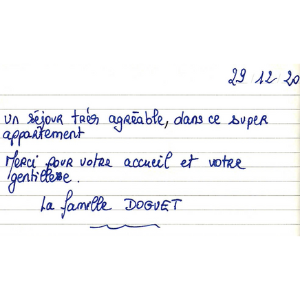 29 12 20
un séjour très agréable, dans ce super
appartement
Merci pour votre accueil et votre
gentillesse.
La famille DOGUET